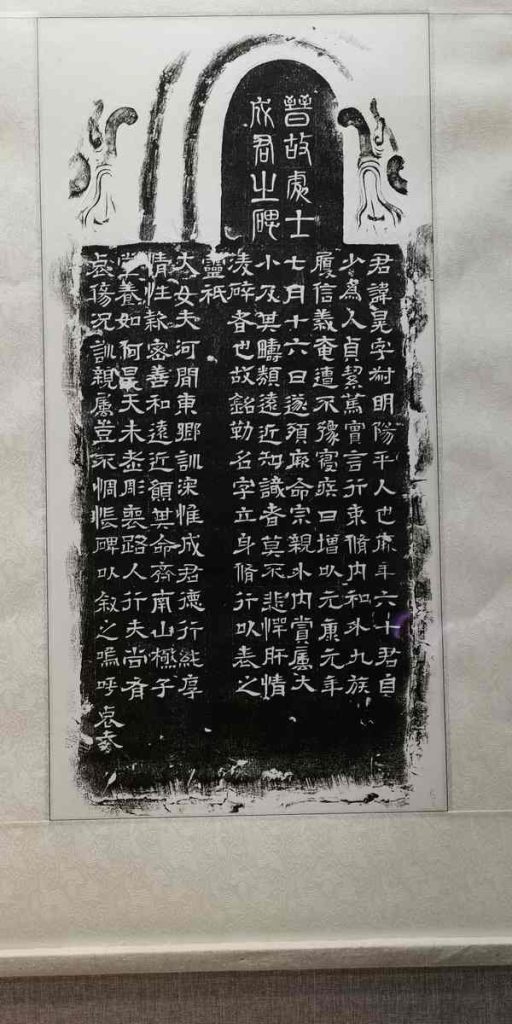 晉故處士
成君之碑
君諱晃字叔明陽平人也年六十君自
少為人貞絜篤實言行束脩內和外九族
履信義奄遭不豫寢疾日增以元康元年
七月十六日遂殞厥命宗親外內賞屬大
小及其疇類遠近知識者莫不悲憚肝情
淩碎者也故銘勒名字立身脩行以表之
靈祇
大女夫河間東鄉訓深惟成君德行純厚
情性密善和遠近願其命齊南山極子
養如何昊天未老彫喪路人行夫尚有
哀傷況訓親屬豈不惆悵碑以敘之嗚呼哀